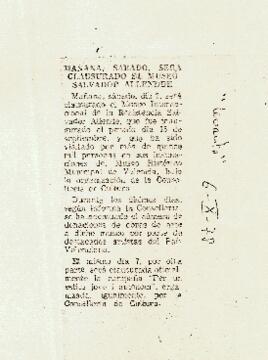 MAÑANA, SABADO, SERA
CLAUSURADO EL MUSEO
SALVADOR ALLENDE
Mañana, sábado, día 7, será
clausurado el Museo Internacional
de la Resistencia Salvador
Allende, que fue inaugurado
el pasado día 15 de
septiembre, y que ha sido
visitado por más de
mil personas en sus
de Museo Histórico
Municipal de Valencia, bajo
la organización de la Conselleria
de Cultura.
Durante los últimos días,
según informa la Conselleria,
se ha
donaciones de obras de arte
a dicho museo por parte de
destacados artistas del País
Valenciano.
El mismo día 7, por otra
parte, será clausurada oficialmente
la campaña "Per un
estiu jove i", organizada,
igualmente, por la
Conselleria de Cultura.